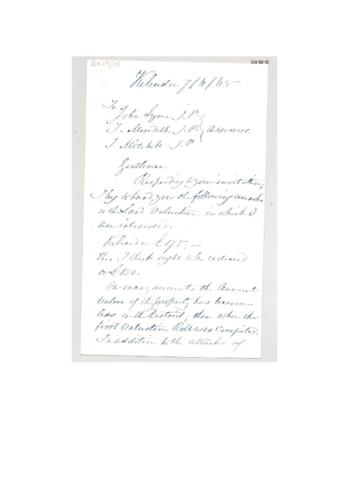 DX 19/15
DX19/15
Kelvedon 7/4/65
To
John Lyne J.P.
T. Meredith J.P.
T. Mitchell J.P.
Gentlemen
Responding to your
I beg to hand you the following remarks
on the Land Valuation, in which I
am interested.
£175:-
This I think ought to be reduced
to £150.
the Annual
Value of the property has become
less in the District, than when the
first Valuation Roll was completed.
In addition to the attacks of